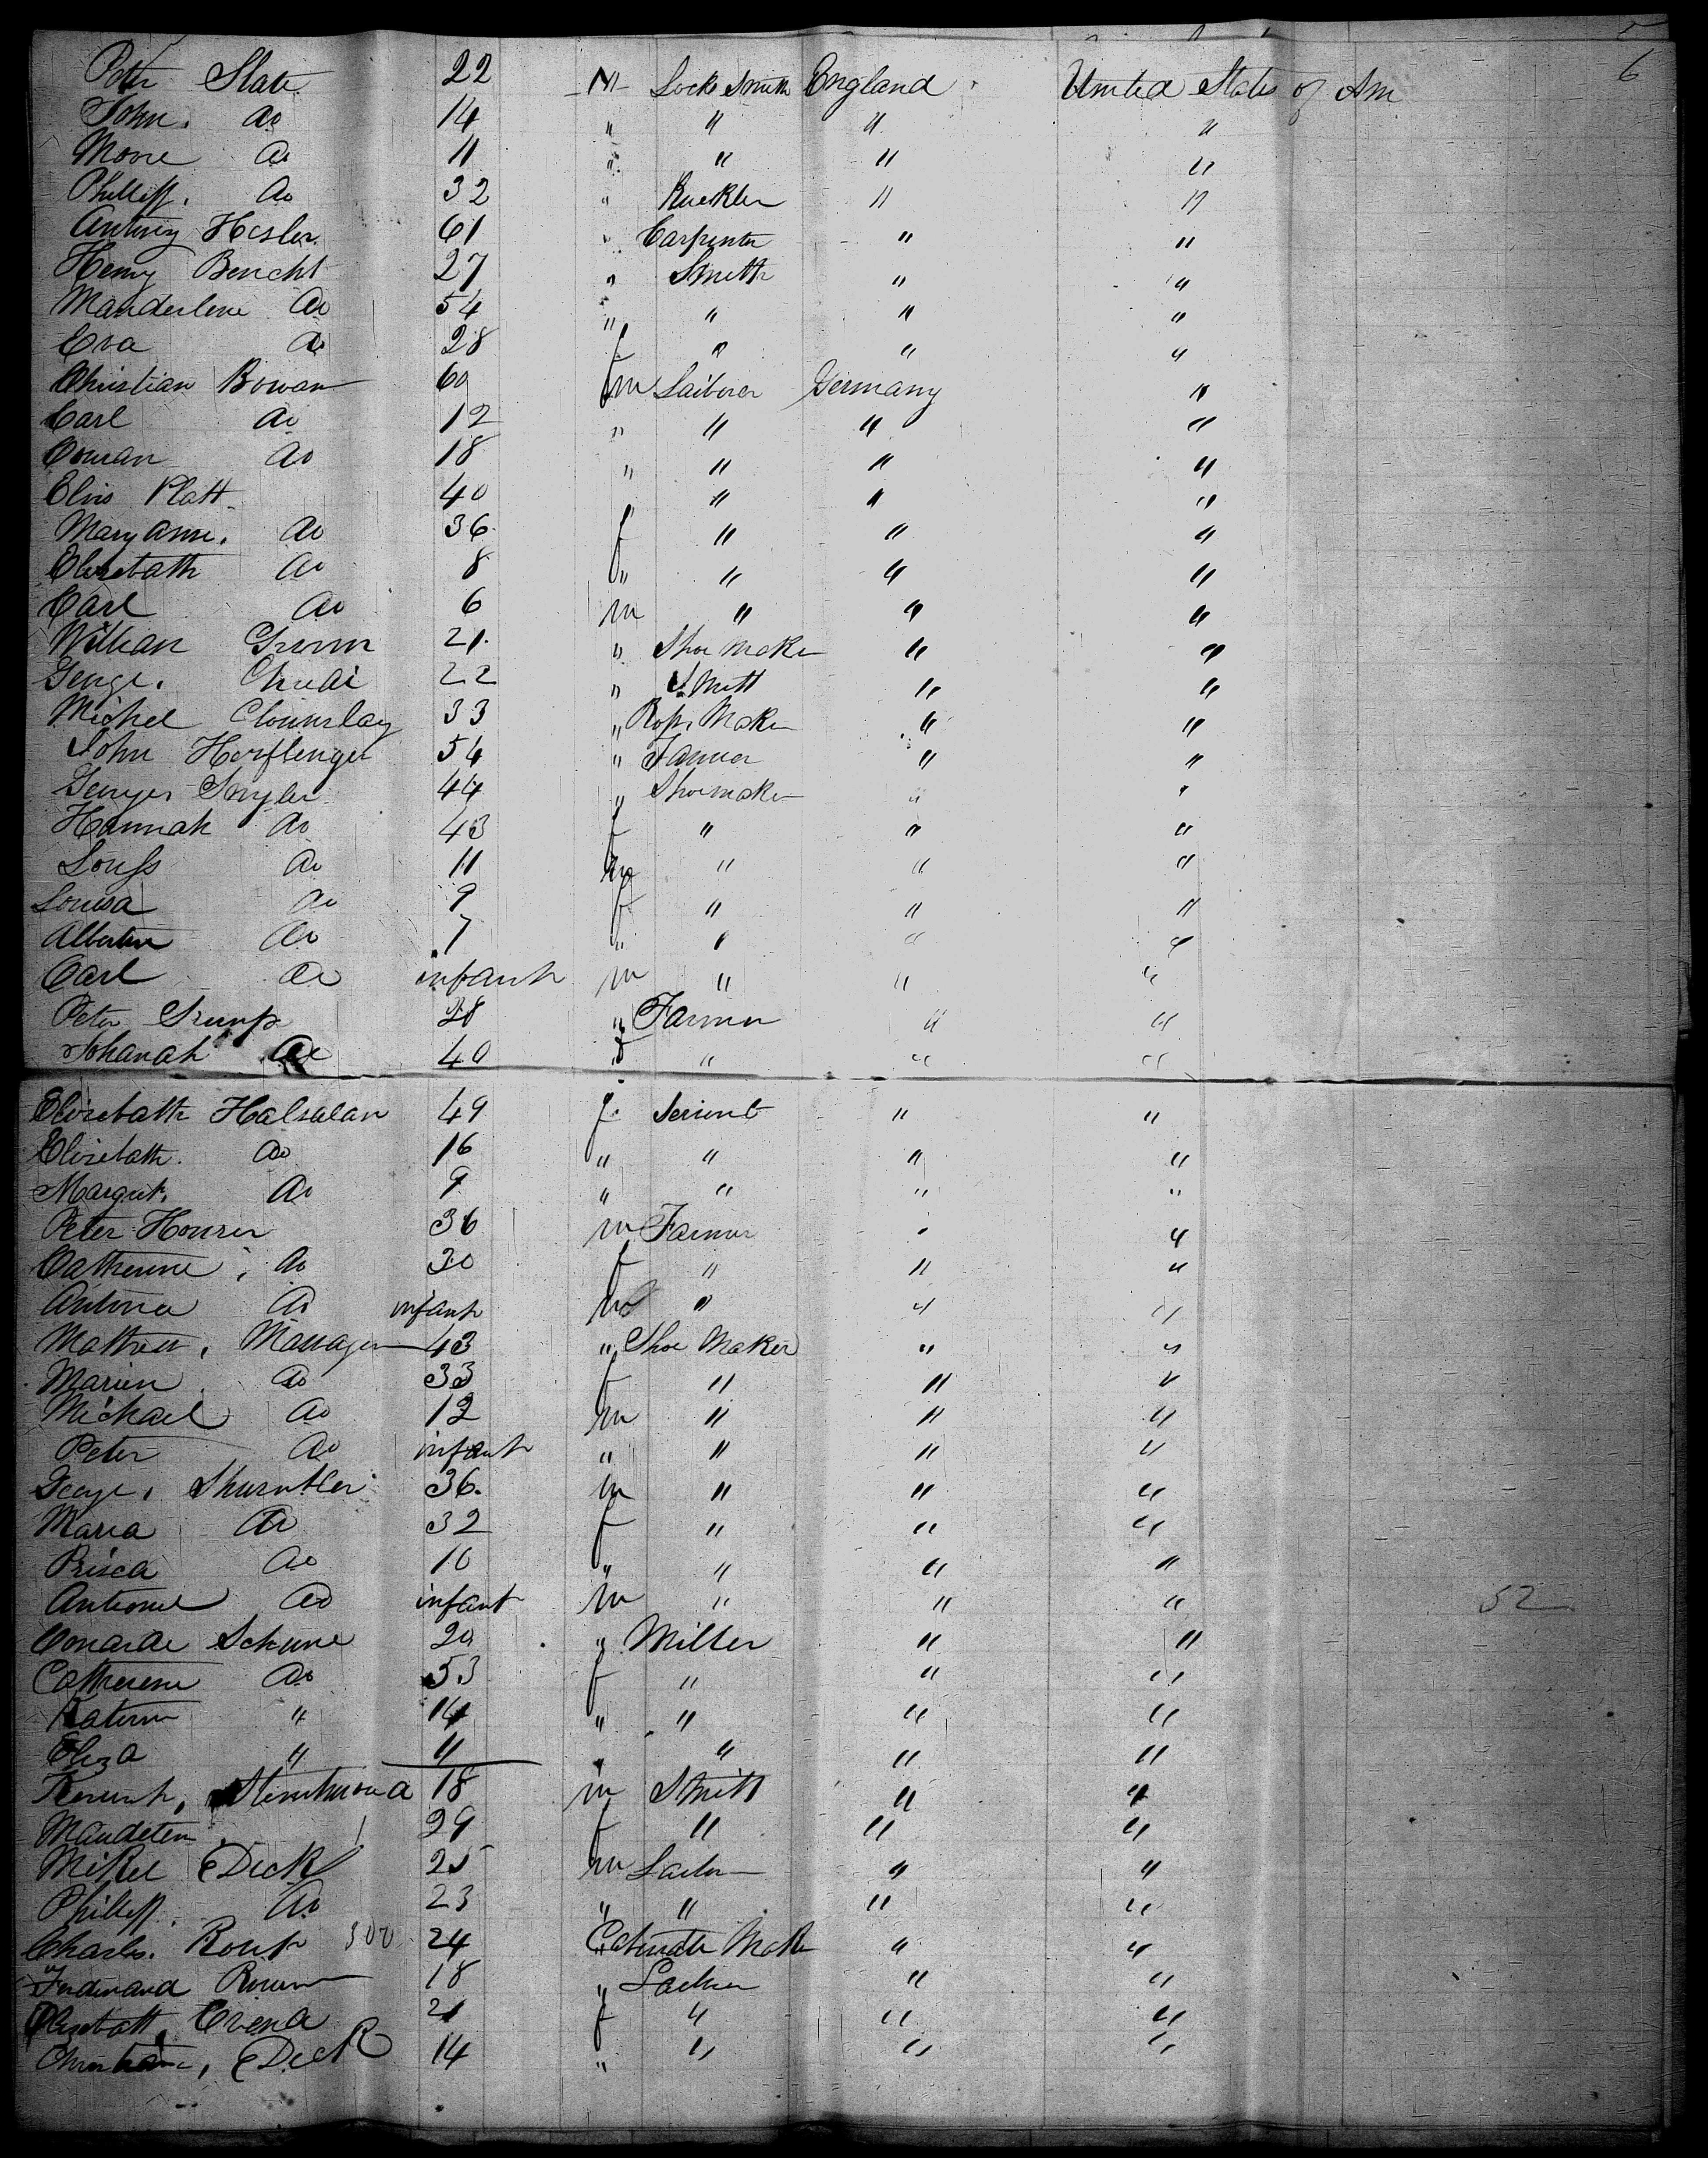 6
Peter Slate 22 M Lock Smith England United States of Am
John. do 14 " " " "
Move do 11 " " " "
Phillip. do 32 " " "
Antony Hesler. 61 " Carpenter " "
Henry Bencht 27 " Smith " "
Manderlene do 54 " " " "
Eva do 28 f " " "
Christian Bowan 60 m Laiborer Germany "
Carl do 12 " " " "
Conran do 18 " " " "
Elvis Platt 40 " " " "
Mary Ann. do 36. f " " "
Elisebath do 8 " " " "
Carl do 6 m " " "
William Grumm 21. " Shoe Maker " "
George. 22 " Smitt " "
Michel 33 " Rope Maker " "
John 54 " " "
Georges Snyler 44 " Shoemaker " "
Hannah do 43 f " " "
Louss do 11 m " " "
Louisa do 9 f " " "
Albertine do 7 " " " "
Carl do infant m " " "
Peter 28 " Farmer " "
Johanah do 40 f " " "
Elisebath Halsalan 49 f. Servent " "
Elisebath. do 16 " " " "
Margret. do 9 " " " "
Peter Hourer 36 m Farmer " "
Catherine, do 30 f " " "
Antona do infant m " " "
Mathew, Massager 43 " Shoe Maker " "
Marien do 33 f " " "
Michael do 12 m " " "
Peter do infant " " " "
George, Shurntler 36. m " " "
Maria do 32 f " " "
Prisca do 10 " " " "
Antionel do infant m " " " 52
Conarde Schune 20 " Miller " "
Catherene do 53 f " " "
Katern " 14 " " " "
Eliza " 11 " " " "
18 m Smitt " "
Maudeten 29 f " " "
Mikel Dick 25 m " "
Phillip. do 23 " " " "
Charls. Roup 300 24 " Cabinate Maker " "
Ferdinand 18 " " "
Elisebatt, Evena 21 f " " "
Dick 14 " " " "